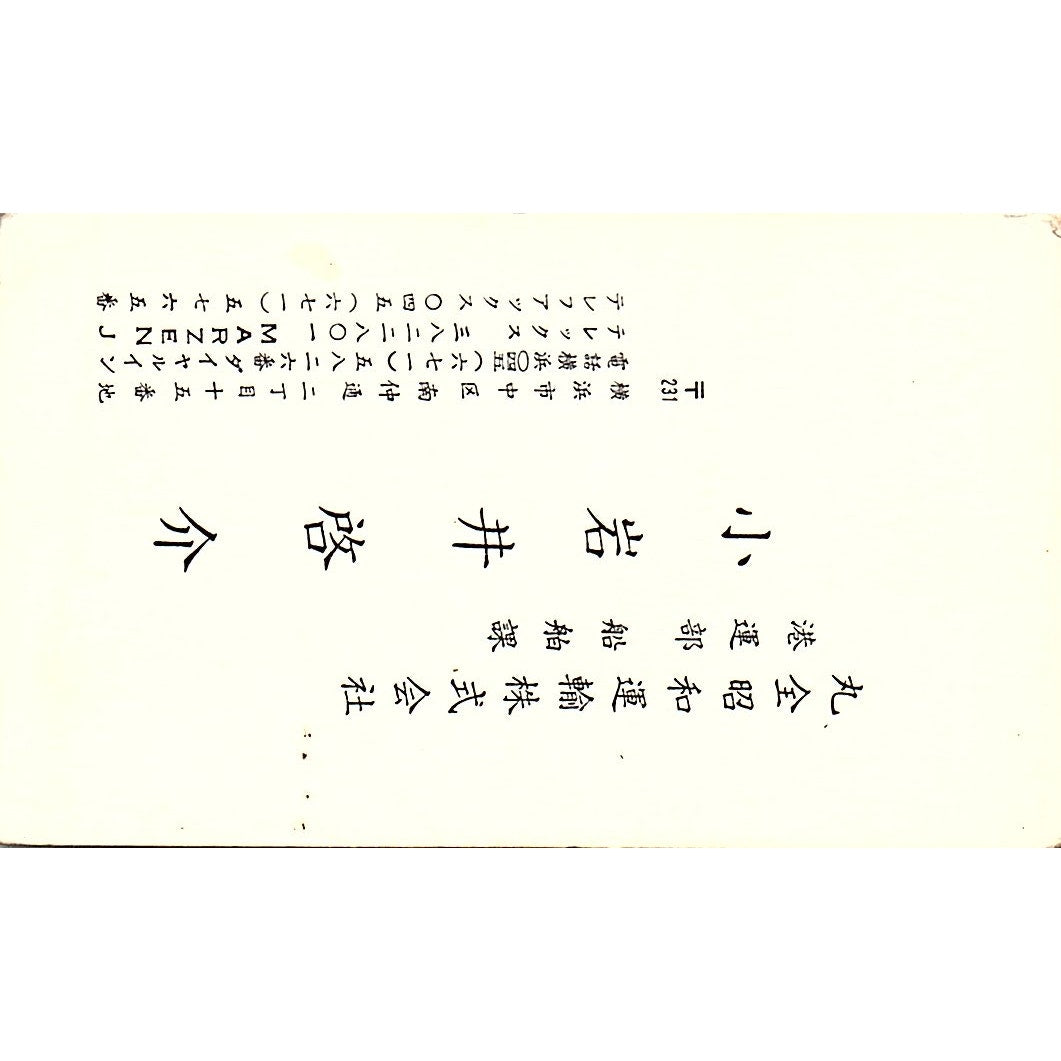 丸全昭和運輸株式会社
港運部 船舶課
小岩井啓介
〒231
横浜市中区南仲通二丁目十五番地
電話横浜〇四五(六七一)五八二六番ダイヤルイン
テレックス 三八二二八〇一 MARZEN J
テレファックス〇四五(六七一)五七六五番